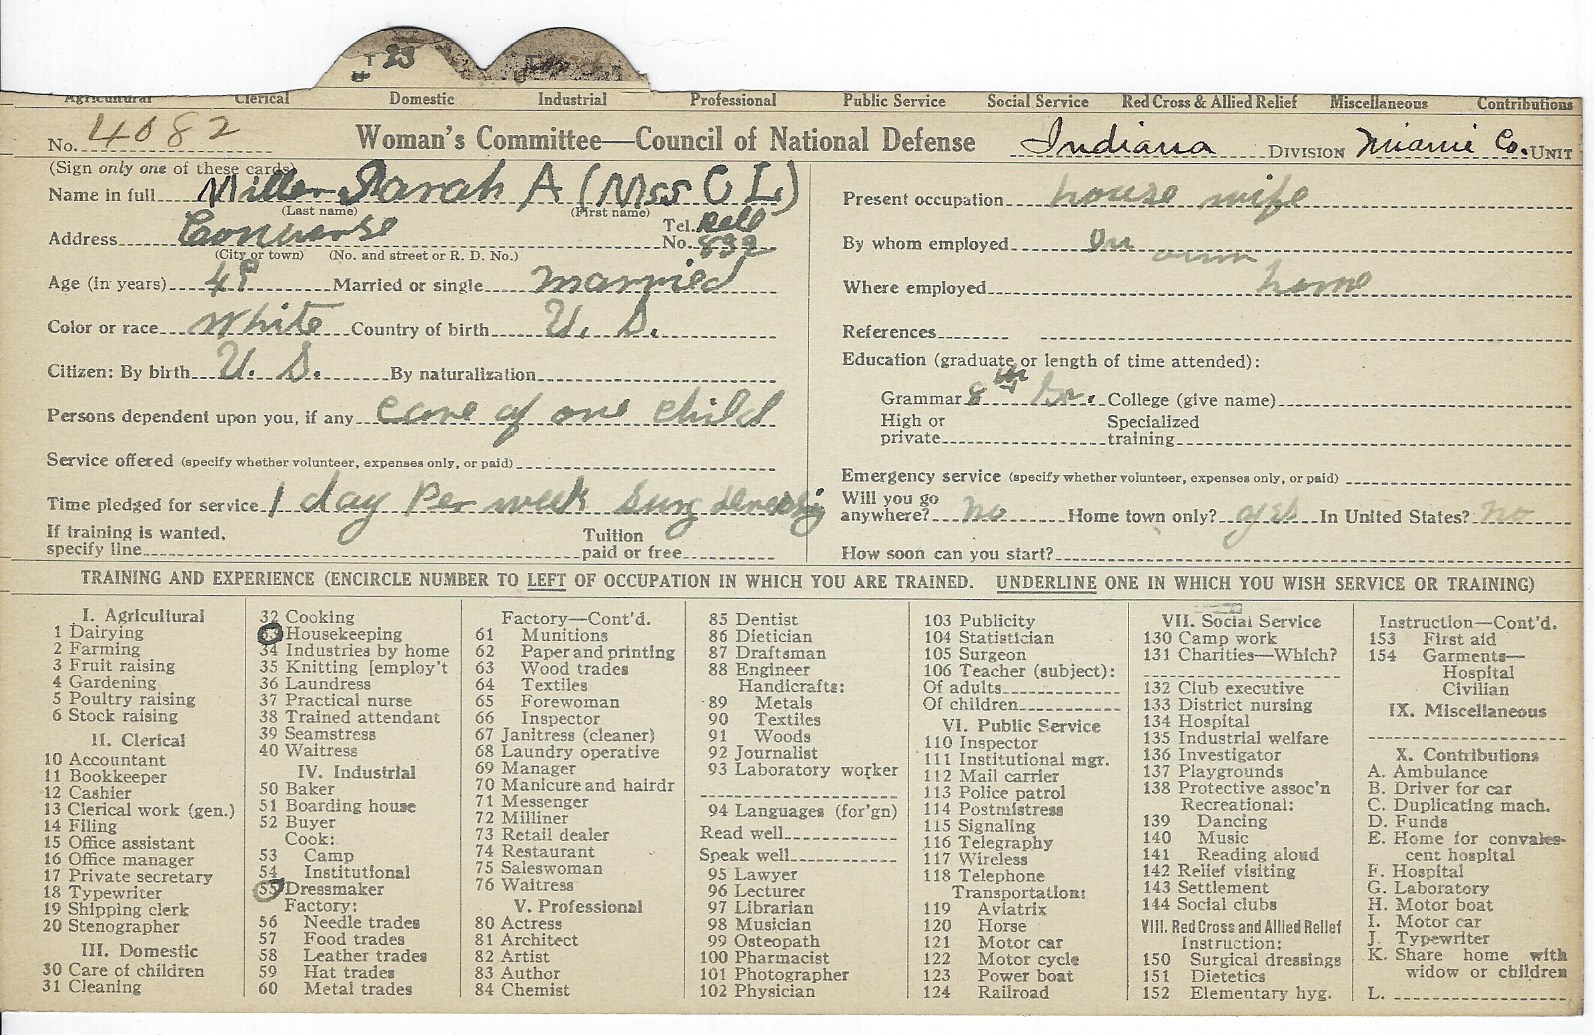 T 23
Agricultural Clerical Domestic Industrial Professional Public Service Social Service Red Cross & Allied Relief Miscellaneous Contributions
No. 4082 Woman's Committee—Council of National Defense Indiana DIVISION Miami Co. UNIT
(Sign only one of these cards)
Name in full Miller Sarah A (Mrs C L)
(Last name) (First name)
Address Converse Tel. No. Bell 832
(City or town) (No. and street or R. D. No.)
Age (in years) 49 Married or single married
Color or race White Country of birth U. S.
Citizen: By birth U. S. By naturalization
Persons dependent upon you, if any care of one child
Service offered (specify whether volunteer, expenses only, or paid)
Time pledged for service 1 day Per week surg dressing
If training is wanted, specify line Tuition paid or free
Present occupation house wife
By whom employed In own
Where employed home
References
Education (graduate or length of time attended):
Grammar 8th Gr. College (give name)
High or private Specialized training
Emergency service (specify whether volunteer, expenses only, or paid)
Will you go anywhere? no Home town only? yes In United States? no
How soon can you start?
TRAINING AND EXPERIENCE (ENCIRCLE NUMBER TO LEFT OF OCCUPATION IN WHICH YOU ARE TRAINED. UNDERLINE ONE IN WHICH YOU WISH SERVICE OR TRAINING)
I. Agricultural
1 Dairying
2 Farming
3 Fruit raising
4 Gardening
5 Poultry raising
6 Stock raising
II. Clerical
10 Accountant
11 Bookkeeper
12 Cashier
13 Clerical work (gen.)
14 Filing
15 Office assistant
16 Office manager
17 Private secretary
18 Typewriter
19 Shipping clerk
20 Stenographer
III. Domestic
30 Care of children
31 Cleaning
32 Cooking
33 Housekeeping
34 Industries by home
35 Knitting [employ't
36 Laundress
37 Practical nurse
38 Trained attendant
39 Seamstress
40 Waitress
IV. Industrial
50 Baker
51 Boarding house
52 Buyer
Cook:
53 Camp
54 Institutional
55 Dressmaker
Factory:
56 Needle trades
57 Food trades
58 Leather trades
59 Hat trades
60 Metal trades
Factory—Cont'd.
61 Munitions
62 Paper and printing
63 Wood trades
64 Textiles
65 Forewoman
66 Inspector
67 Janitress (cleaner)
68 Laundry operative
69 Manager
70 Manicure and hairdr
71 Messenger
72 Milliner
73 Retail dealer
74 Restaurant
75 Saleswoman
76 Waitress
V. Professional
80 Actress
81 Architect
82 Artist
83 Author
84 Chemist
85 Dentist
86 Dietician
87 Draftsman
88 Engineer
Handicrafts:
89 Metals
90 Textiles
91 Woods
92 Journalist
93 Laboratory worker
94 Languages (for'gn)
Read well
Speak well
95 Lawyer
96 Lecturer
97 Librarian
98 Musician
99 Osteopath
100 Pharmacist
101 Photographer
102 Physician
103 Publicity
104 Statistician
105 Surgeon
106 Teacher (subject):
Of adults
Of children
VI. Public Service
110 Inspector
111 Institutional mgr.
112 Mail carrier
113 Police patrol
114 Postmistress
115 Signaling
116 Telegraphy
117 Wireless
118 Telephone
Transportation:
119 Aviatrix
120 Horse
121 Motor car
122 Motor cycle
123 Power boat
124 Railroad
VII. Social Service
130 Camp work
131 Charities—Which?
132 Club executive
133 District nursing
134 Hospital
135 Industrial welfare
136 Investigator
137 Playgrounds
138 Protective assoc'n
Recreational:
139 Dancing
140 Music
141 Reading aloud
142 Relief visiting
143 Settlement
144 Social clubs
VIII. Red Cross and Allied Relief
Instruction:
150 Surgical dressings
151 Dietetics
152 Elementary hyg.
Instruction—Cont'd.
153 First aid
154 Garments—
Hospital
Civilian
IX. Miscellaneous
X. Contributions
A. Ambulance
B. Driver for car
C. Duplicating mach.
D. Funds
E. Home for convales-
cent hospital
F. Hospital
G. Laboratory
H. Motor boat
I. Motor car
J. Typewriter
K. Share home with
widow or children
L.